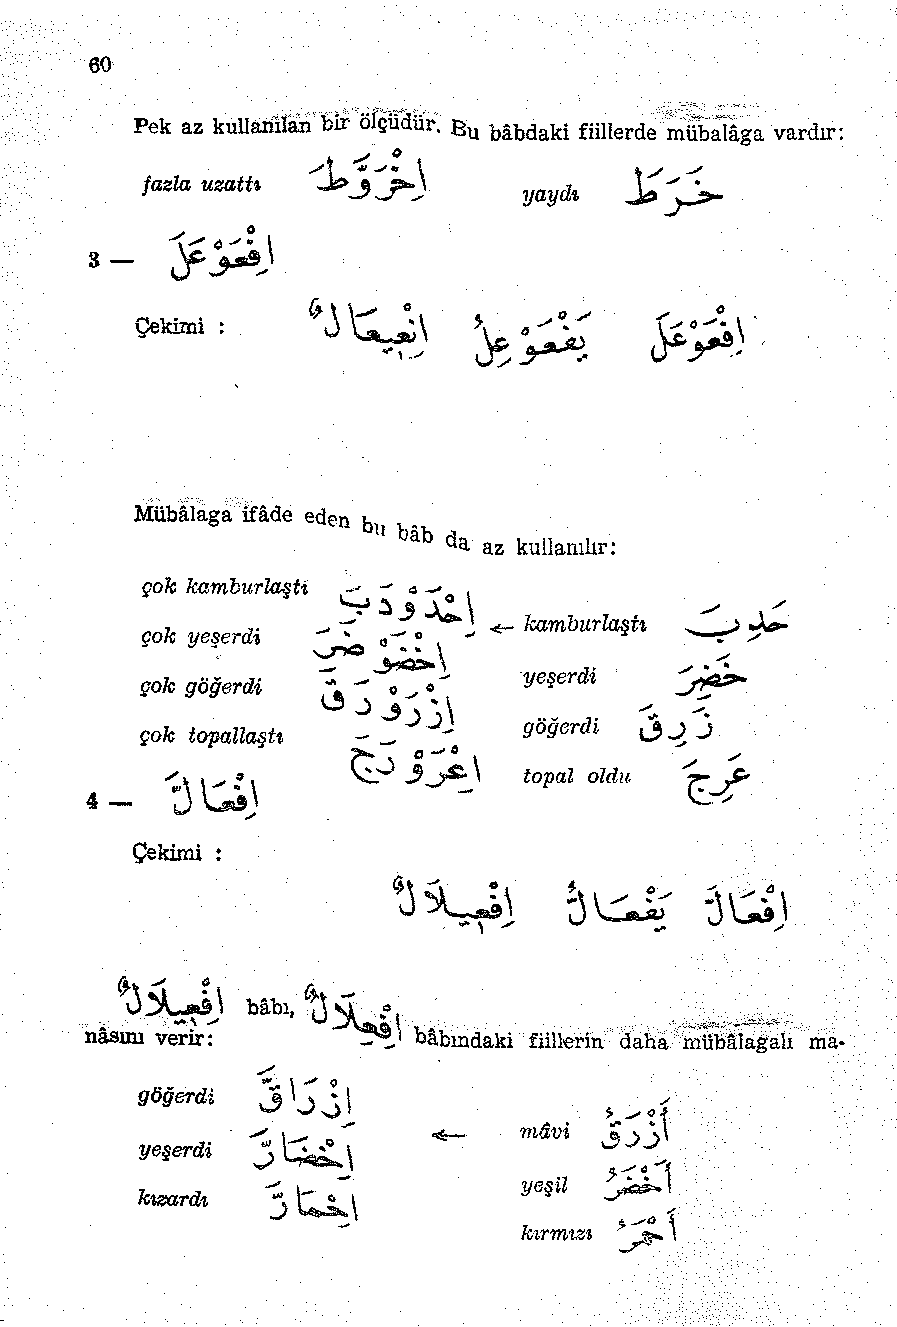 60
Pek az kullanılan bir ölçüdür. Bu bâbdaki fiillerde mübalâga vardır:
fazla uzattı اِخْرَوَّطَ yaydı خَرَطَ
3 — اِفْعَوْعَلَ
Çekimi : اِفْعَوْعَلَ يَفْعَوْعِلُ اِفْعِيعَالٌ
Mübâlaga ifâde eden bu bâb da az kullanılır:
çok kamburlaştı اِحْدَوْدَبَ ← kamburlaştı حَدِبَ
çok yeşerdi اِخْضَوْضَرَ yeşerdi خَضِرَ
çok göğerdi اِزْرَوْرَقَ göğerdi زَرِقَ
çok topallaştı اِعْرَوْرَجَ topal oldu عَرِجَ
4 — اِفْعَالَّ
Çekimi :
اِفْعَالَّ يَفْعَالُّ اِفْعِيلَالٌ
اِفْعِيلَالٌ bâbı, اِفْعِلَالٌ bâbındaki fiillerin daha mübâlağalı ma-
nâsını verir:
göğerdi اِزْرَاقَّ ← mâvi أَزْرَقُ
yeşerdi اِخْضَارَّ yeşil أَخْضَرُ
kızardı اِحْمَارَّ kırmızı أَحْمَرُ